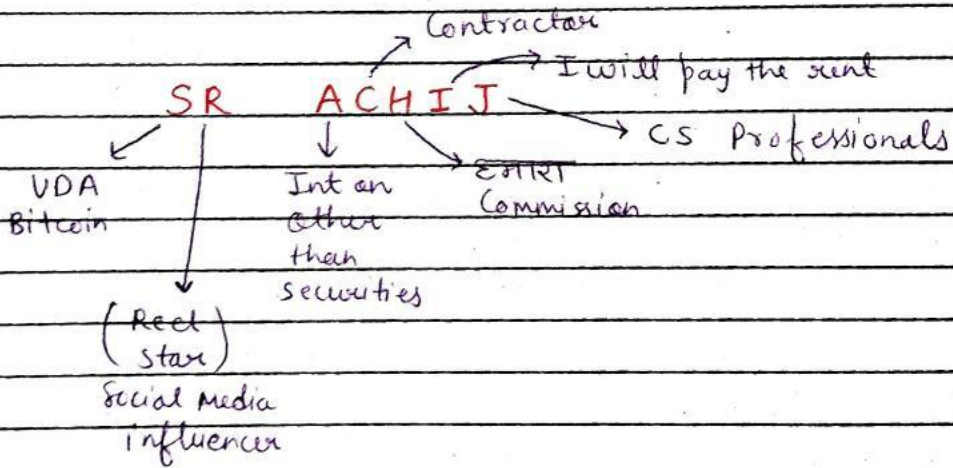 Contractor
I will pay the rent
SR ACHIJ
CS Professionals
VDA
Bitcoin
Int on
other
than
securities
हमारा
Commission
(Reel
star)
Social Media
influencer